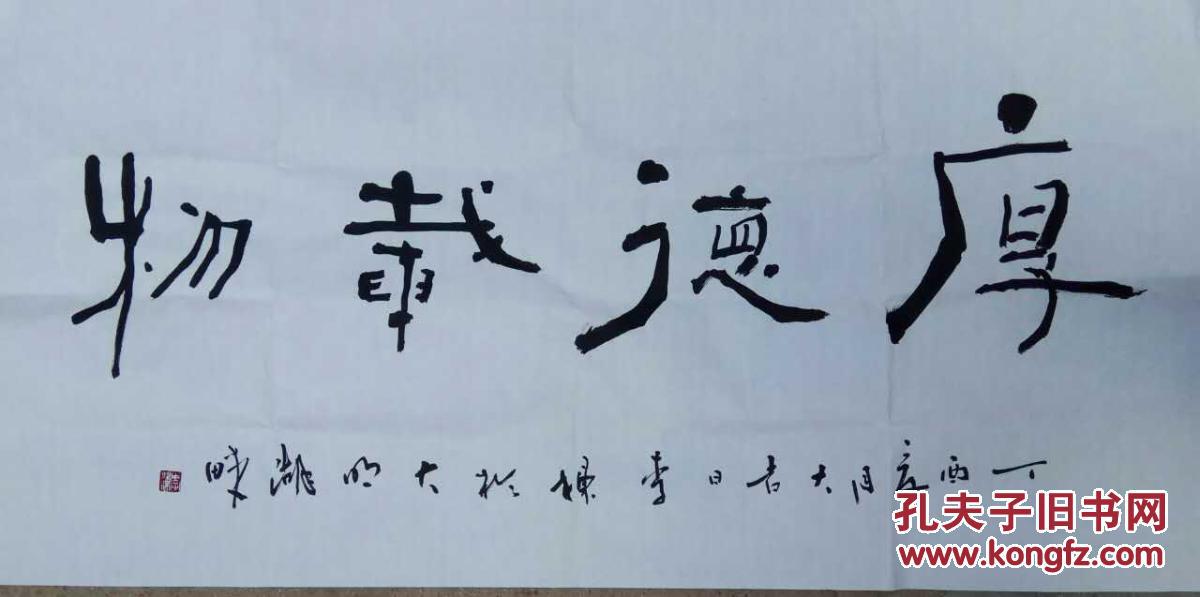 厚德載物
丁酉夏月大吉日李樑於大明湖畔
孔夫子旧书网
www.kongfz.com